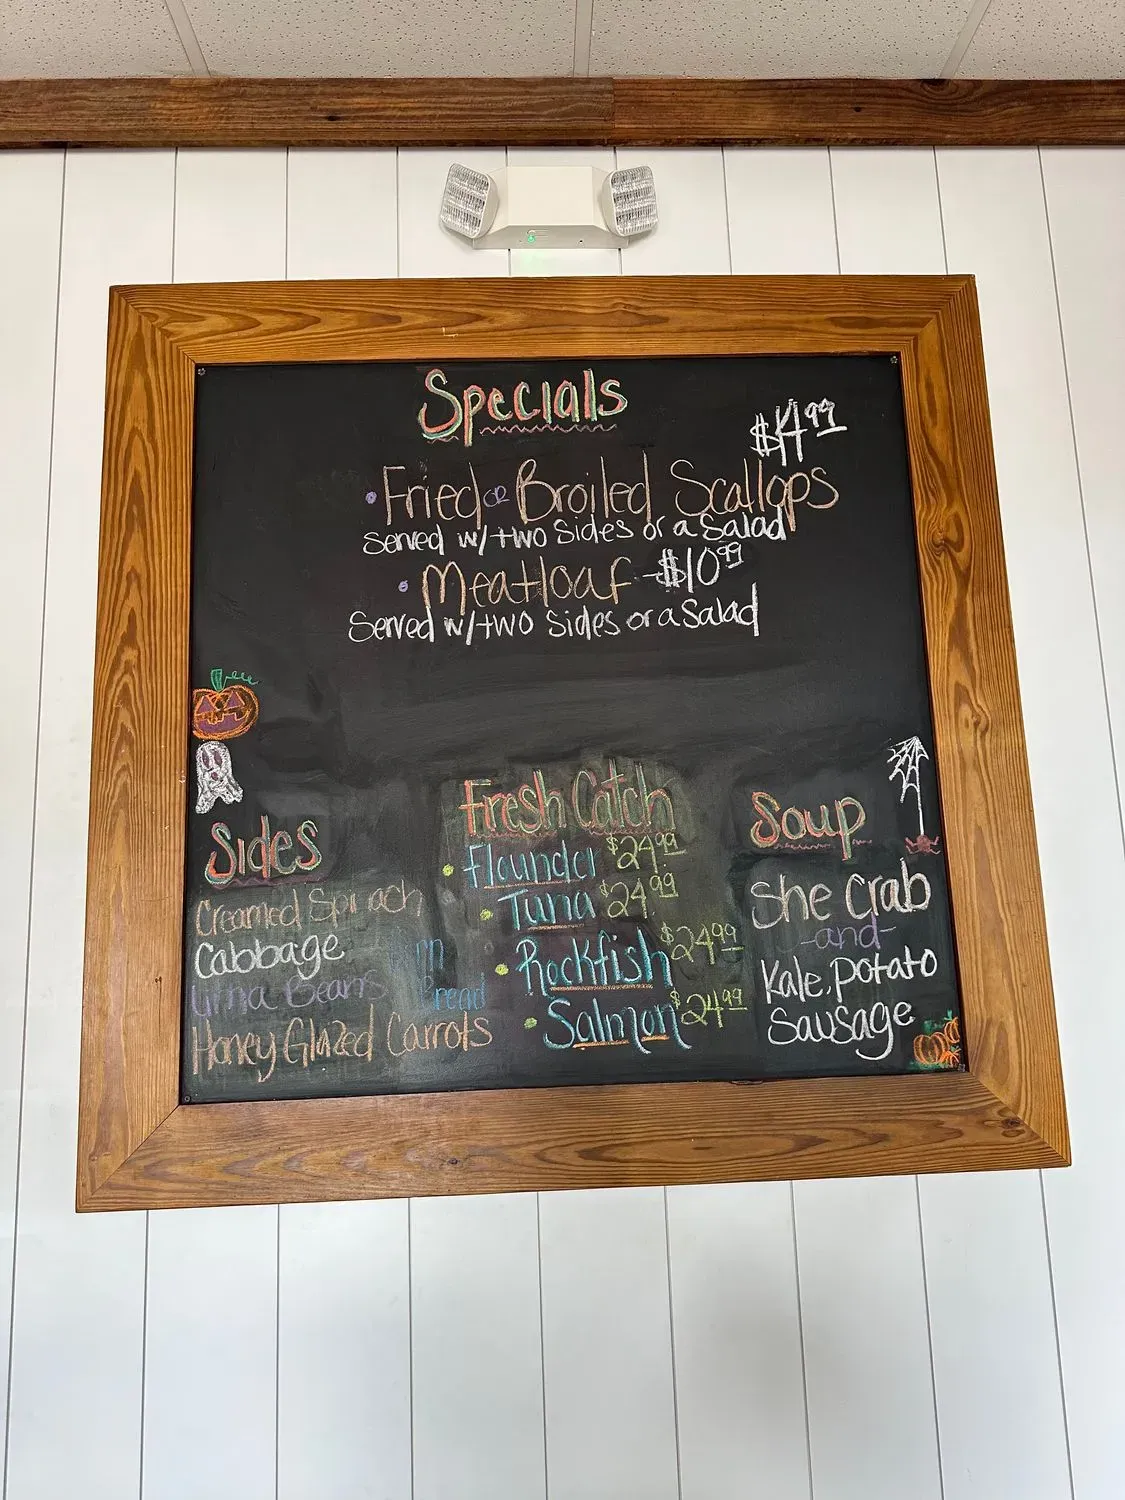 Specials
$14.99
• Fried or Broiled Scallops
Served w/two sides or a Salad
• Meatloaf - $10.99
Served w/two sides or a Salad
Sides
Creamed Spinach
Cabbage
Lima Beans
Bread
Honey Glazed Carrots
Fresh Catch
• Flounder $24.99
• Tuna $24.99
• Rockfish $24.99
• Salmon $24.99
Soup
She Crab
-and-
Kale, Potato
Sausage